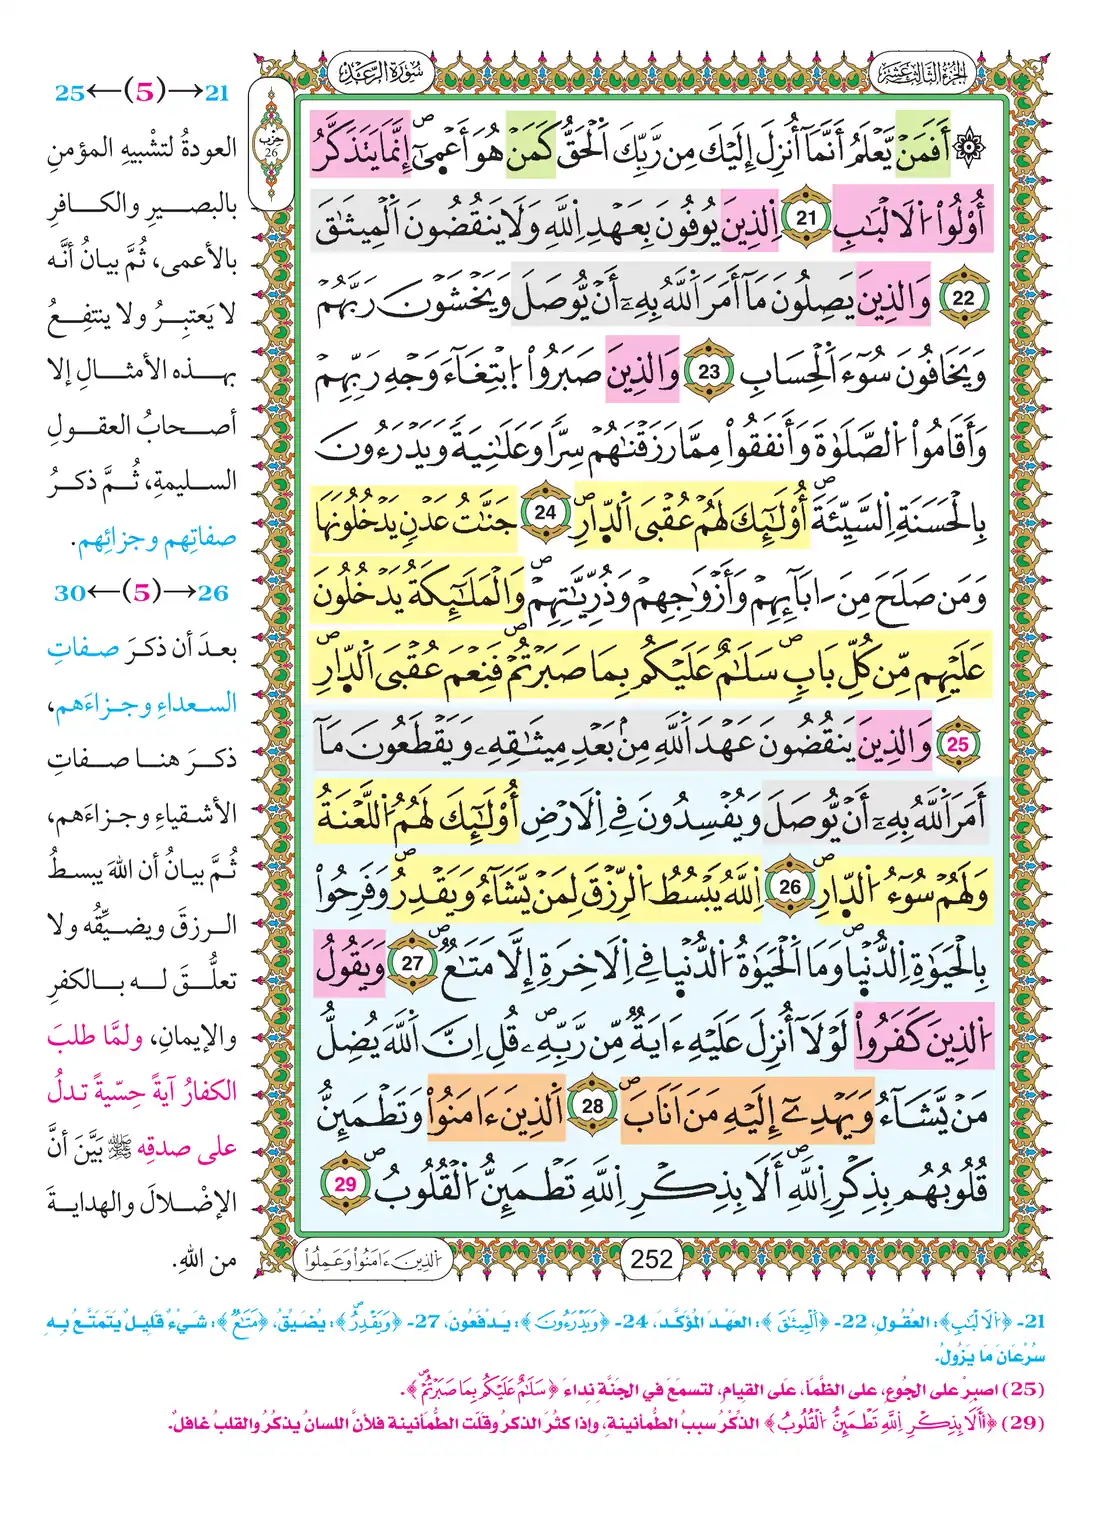 الجزء الثالث عشر
سورة الرعد
حزب
26
أَفَمَنْ يَّعْلَمُ أَنَّمَآ أُنزِلَ إِلَيْكَ مِن رَّبِّكَ اَلْحَقُّ كَمَنْ هُوَ أَعْمَىٰٓ إِنَّمَا يَتَذَكَّرُ
أُوْلُواْ اُ۬لَالْبَٰبِ 21 اِ۬لذِينَ يُوفُونَ بِعَهْدِ اِ۬للَّهِ وَلَا يَنقُضُونَ اَ۬لْمِيثَٰقَ
22 وَالذِينَ يَصِلُونَ مَآ أَمَرَ اَ۬للَّهُ بِهِۦٓ أَنْ يُّوصَلَ وَيَخْشَوْنَ رَبَّهُمْ
وَيَخَافُونَ سُوٓءَ اَ۬لْحِسَابِ 23 وَالذِينَ صَبَرُواْ اُ۪بْتِغَآءَ وَجْهِ رَبِّهِمْ
وَأَقَامُواْ اُ۬لصَّلَوٰةَ وَأَنفَقُواْ مِمَّا رَزَقْنَٰهُمْ سِرّاً وَعَلَٰنِيَةً وَيَدْرَءُونَ
بِالْحَسَنَةِ اِ۬لسَّيِّئَةَ أُوْلَٰٓئِكَ لَهُمْ عُقْبَى اَ۬لدّ۪ارِ 24 جَنَّٰتُ عَدْنٍ يَدْخُلُونَهَا
وَمَن صَلَحَ مِنَ ءَابَآئِهِمْ وَأَزْوَٰجِهِمْ وَذُرِّيَّٰتِهِمْ وَالْمَلَٰٓئِكَةُ يَدْخُلُونَ
عَلَيْهِم مِّن كُلِّ بَابٍ سَلَٰمٌ عَلَيْكُم بِمَا صَبَرْتُمْ فَنِعْمَ عُقْبَى اَ۬لدّ۪ارِ
25 وَالذِينَ يَنقُضُونَ عَهْدَ اَ۬للَّهِ مِنۢ بَعْدِ مِيثَٰقِهِۦ وَيَقْطَعُونَ مَآ
أَمَرَ اَ۬للَّهُ بِهِۦٓ أَنْ يُّوصَلَ وَيُفْسِدُونَ فِي اِ۬لَارْضِ أُوْلَٰٓئِكَ لَهُمُ اُ۬للَّعْنَةُ
وَلَهُمْ سُوٓءُ اُ۬لدّ۪ارِ 26 اِ۬للَّهُ يَبْسُطُ اُ۬لرِّزْقَ لِمَنْ يَّشَآءُ وَيَقْدِرُ وَفَرِحُواْ
بِالْحَيَوٰةِ اِ۬لدُّنْيَا وَمَا اَ۬لْحَيَوٰةُ اُ۬لدُّنْيَا فِي اِ۬لَاخِرَةِ إِلَّا مَتَٰعٌ 27 وَيَقُولُ
اُ۬لذِينَ كَفَرُواْ لَوْلَآ أُنزِلَ عَلَيْهِ ءَايَةٌ مِّن رَّبِّهِۦ قُلِ اِنَّ اَ۬للَّهَ يُضِلُّ
مَنْ يَّشَآءُ وَيَهْدِےٓ إِلَيْهِ مَنَ اَنَابَ 28 اَ۬لذِينَ ءَامَنُواْ وَتَطْمَئِنُّ
قُلُوبُهُم بِذِكْرِ اِ۬للَّهِ أَلَا بِذِكْرِ اِ۬للَّهِ تَطْمَئِنُّ اُ۬لْقُلُوبُ 29
اُ۬لذِينَ ءَامَنُواْ وَعَمِلُواْ
252
21→(5)←25
العودةُ لتشْبيهِ المؤمنِ
بالبصيرِ والكافرِ
بالأعمى، ثُمَّ بيانُ أنَّه
لا يَعتبِرُ ولا ينتفِعُ
بهذه الأمثالِ إلا
أصحابُ العقولِ
السليمةِ، ثُمَّ ذكرُ
صفاتِهم وجزائِهم.
26→(5)←30
بعدَ أن ذكرَ صفاتِ
السعداءِ وجزاءَهم،
ذكرَ هنا صفاتِ
الأشقياءِ وجزاءَهم،
ثُمَّ بيانُ أن اللهَ يبسطُ
الرزقَ ويضيِّقُه ولا
تعلُّقَ له بالكفرِ
والإيمانِ، ولمَّا طلبَ
الكفارُ آيةً حِسّيةً تدلُ
على صدقِه ﷺ بَيَّنَ أنَّ
الإضْلالَ والهدايةَ
من اللهِ.
21- ﴿اُ۬لَالْبَٰبِ﴾: العُقُولِ، 22- ﴿اَ۬لْمِيثَٰقَ﴾: العَهْدَ المُؤَكَّدَ، 24- ﴿وَيَدْرَءُونَ﴾: يَدْفَعُونَ، 27- ﴿وَيَقْدِرُ﴾: يُضَيِّقُ، ﴿مَتَٰعٌ﴾: شَيْءٌ قَلِيلٌ يَتَمَتَّعُ بِهِ
سُرْعَانَ مَا يَزُولُ.
(25) اصبِرْ على الجُوعِ، على الظَّمأ، على القيامِ، لتسمعَ في الجَنَّةِ نِداءَ ﴿سَلَٰمٌ عَلَيْكُم بِمَا صَبَرْتُمْ﴾.
(29) ﴿أَلَا بِذِكْرِ اِ۬للَّهِ تَطْمَئِنُّ اُ۬لْقُلُوبُ﴾ الذِّكْرُ سببُ الطُّمأنينة، وإذا كثُرَ الذكرُ وقلَّت الطُّمأنينة فلأنَّ اللسانَ يذكُرُ والقلبُ غافلٌ.